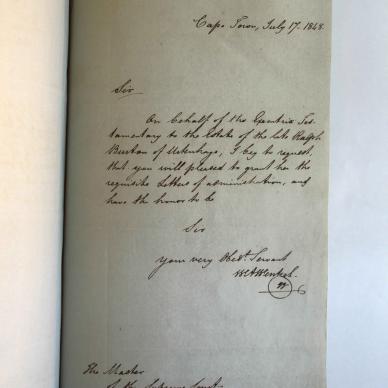 Cape Town, July 17. 1848.
Sir
On behalf of the Executrix Tes-
tamentary to the Estate of the late Ralph
Burton of Uitenhage, I beg to request,
that you will pleased to grant her the
requisite Letters of administration, and
have the honor to be
Sir
Your very Obedt. Servant
The Master
of the Supreme Court